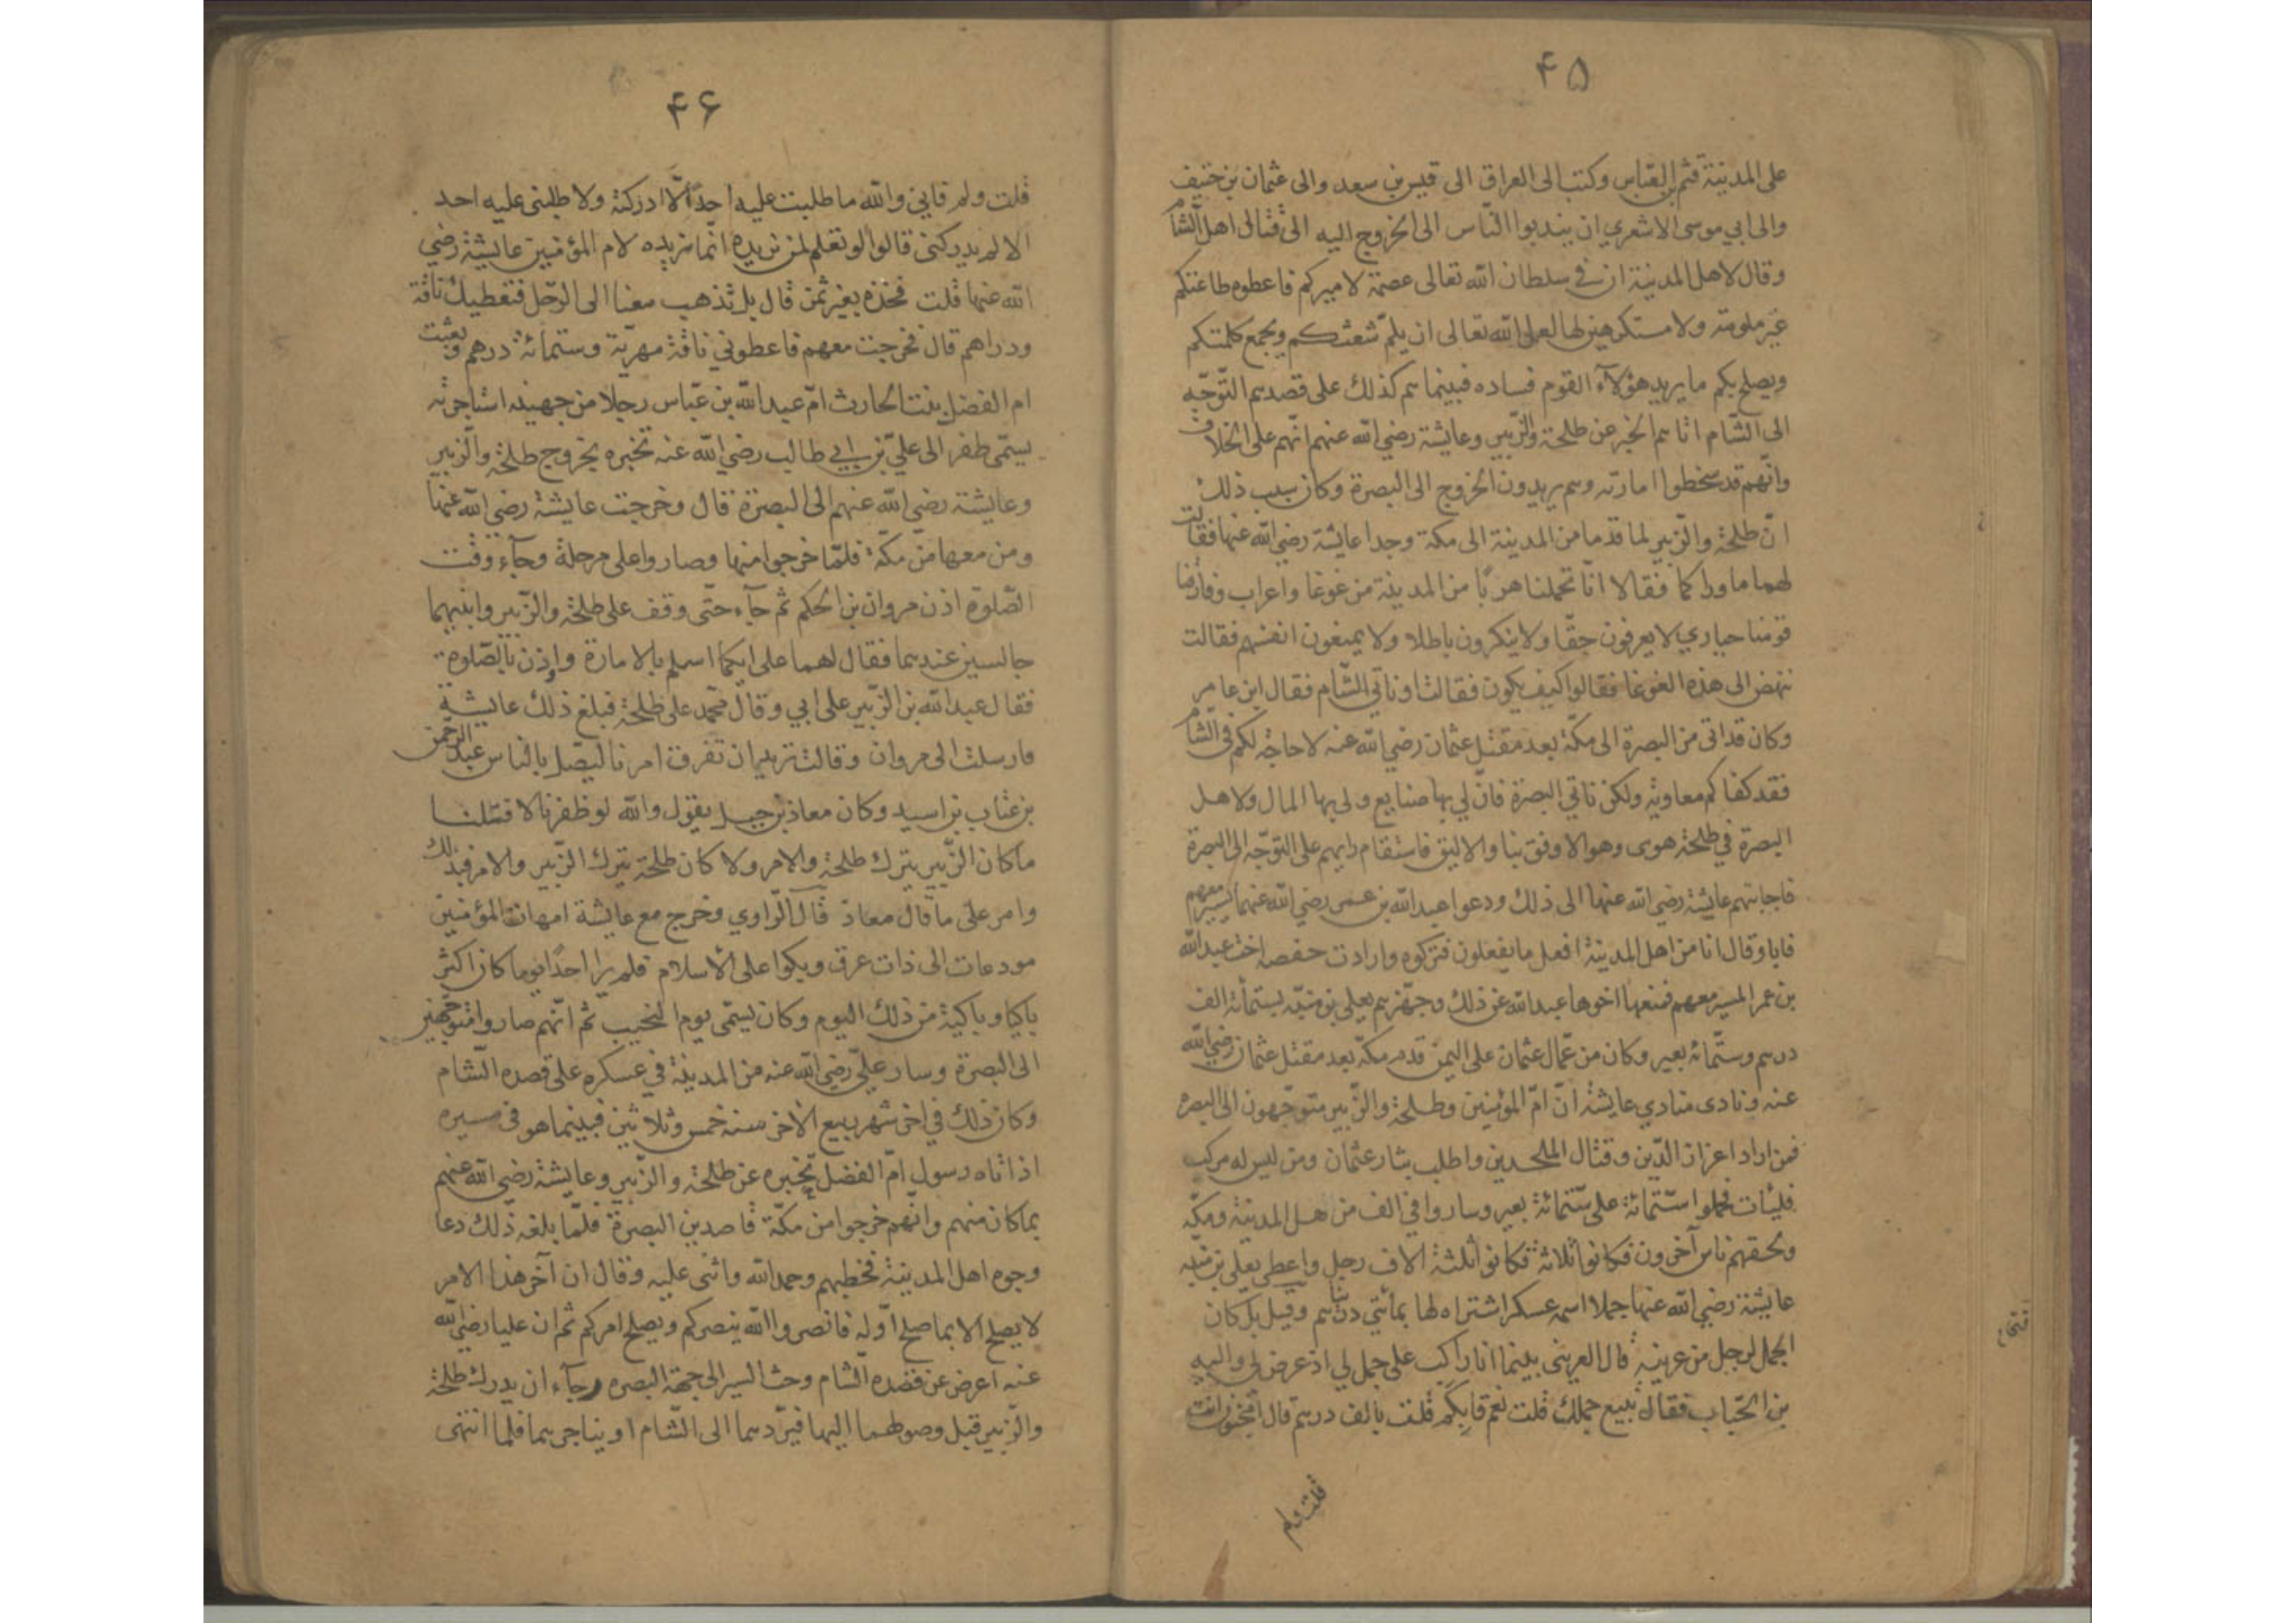 ۴۵
على المدينة قثم بن العباس وكتب الى العراق الى قيس بن سعد والى عثمان بن حنيف
والى ابي موسى الاشعري ان يندبوا الناس الى الخروج اليه الى قتال اهل الشام
وقال لاهل المدينة ان في سلطان الله تعالى عصمة لاميركم فاعطوه طاعتكم
غير ملومة ولا مستكرهين لها لعل الله تعالى ان يلمّ شعثكم ويجمع كلمتكم
ويصلح بكم ما يريد هؤلاء القوم فساده فبينما هم كذلك على قصدهم التوجّه
الى الشام اتاهم الخبر عن طلحة والزبير وعايشة رضي الله عنهم انهم على الخلاف
وانهم قد سخطوا امارته وهم يريدون الخروج الى البصرة وكان سبب ذلك
انّ طلحة والزبير لما قدما من المدينة الى مكة وجدا عايشة رضي الله عنها فقالت
لهما ما وراكما فقالا انّا تحملنا هربًا من المدينة من غوغا واعراب وفارقنا
قومنا حيارى لا يعرفون حقّا ولا ينكرون باطلا ولا يمنعون انفسهم فقالت
ننهض الى هذه الغوغا فقالوا كيف يكون فقالت او ناتي الشام فقال ابن عامر
وكان قد اتى من البصرة الى مكّة بعد مقتل عثمان رضي الله عنه لا حاجة لكم في الشام
فقد كفاكم معاوية ولكن ناتي البصرة فانّ لي بها صنايع ولي بها المال ولاهل
البصرة في طلحة هوى وهو الاوفق بنا والاليق فاستقام رايهم على التوجّه الى البصرة
فاجابتهم عايشة رضي الله عنها الى ذلك ودعوا عبد الله بن عمر رضي الله عنهما ليسير معهم
فابا وقال انا من اهل المدينة افعل ما يفعلون فتركوه وارادت حفصه اخت عبد الله
بن عمر المسير معهم فمنعها اخوها عبد الله عن ذلك وجهّزهم يعلى بن منيّه بستمائة الف
درهم وستّمائة بعير وكان من عمّال عثمان على اليمن قدم مكّة بعد مقتل عثمان رضي الله
عنه ونادى منادي عايشة انّ امّ المؤمنين وطلحة والزّبير متوجّهون الى البصره
فمن اراد اعزاز الدّين وقتال الملحدين واطلب بثار عثمان ومن ليس له مركب
فليأت فحملوا ستّمائة على ستّمائة بعير وساروا في الف من اهل المدينة ومكّة
ولحقهم ناس آخرون فكانوا ثلاثة فكانوا ثلثة الاف رجل واعطى يعلى بن منيه
عايشة رضي الله عنها جملا اسمه عسكر اشتراه لها بمائتي درهم وقيل بل كان
الجمل لرجل من عرينه قال العرينى بينما انا راكب على جمل لي اذ عرض لي واليه
بن الحباب فقال تبيع جملك قلت نعم قال بكم قلت بالف درهم قال امجنون انت
قلت ولم
۴۶
قلت ولم قابي والله ما طلبت عليه احدًا الّا ادركته ولا طلبنى عليه احد
الا لم يدركنى قالوا لو تعلم لمن نريده انّما نريده لام المؤمنين عايشة رضي
الله عنها قلت فخذه بغير ثمن قال بل تذهب معنا الى الرّحل فنعطيك ناقة
ودراهم قال فخرجت معهم فاعطوني ناقة مهريّة وستمائة درهم وبعثت
ام الفضل بنت الحارث امّ عبد الله بن عبّاس رجلا من جهينه استاجرته
يسمّى ظفر الى عليّ بن ابي طالب رضي الله عنه تخبره بخروج طلحة والزبير
وعايشة رضي الله عنهم الى البصرة قال وخرجت عايشة رضي الله عنها
ومن معها من مكّة فلمّا خرجوا منها وصاروا على مرحلة وجاء وقت
الصّلوة اذن مروان بن الحكم ثم جاء حتّى وقف على طلحة والزّبير وابنيهما
جالسين عندهما فقال لهما على ايكما اسلم بالامارة واوذن بالصّلوة
فقال عبد الله بن الزّبير على ابي وقال محمد على طلحة فبلغ ذلك عايشة
فارسلت الى مروان وقالت تريد ان تفرق امرنا ليصل بالناس عبد الرحمن
بن عتاب بن اسيد وكان معاذ بن جبل يقول والله لو ظفرنا لاقتتلنا
ما كان الزّبير يترك طلحة والامر ولا كان طلحة يترك الزّبير والامر فبذلك
وامر على ما قال معاذ قال الرّاوي وخرج مع عايشة امهات المؤمنين
مودعات الى ذات عرق وبكوا على الاسلام فلم ير احدًا يوما كان اكثر
باكيا وباكية من ذلك اليوم وكان يسمّى يوم النحيب ثم انّهم صاروا متوجّهين
الى البصرة وسار عليّ رضي الله عنه من المدينة في عسكره على قصده الشام
وكان ذلك في اخر شهر ربيع الاخر سنه خمس وثلاثين فبينما هو في مسيره
اذ اتاه رسول امّ الفضل تخبره عن طلحة والزّبير وعايشة رضي الله عنهم
بما كان منهم وانّهم خرجوا من مكّة قاصدين البصرة فلمّا بلغه ذلك دعا
وجوه اهل المدينة فخطبهم وحمد الله واثنى عليه وقال ان آخر هذا الامر
لا يصلح الا بما صلح اوّله فانصروا الله ينصركم ويصلح امركم ثم ان عليا رضي الله
عنه اعرض عن قصده الشام وحث السير الى جهة البصره رجاء ان يدرك طلحة
والزّبير قبل وصولهما اليها فيردّهما الى الشام او يناجزهما فلما انتهى